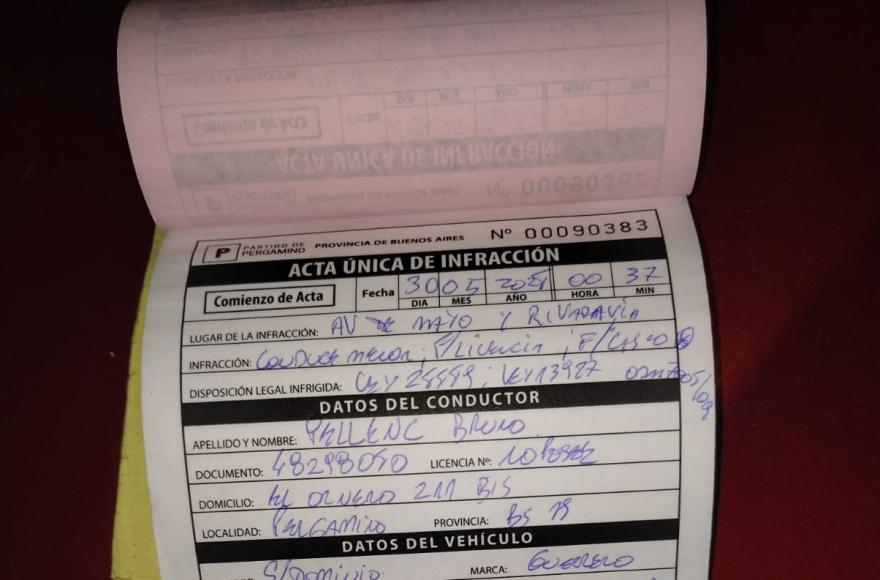 P PARTIDO DE PERGAMINO PROVINCIA DE BUENOS AIRES Nº 00090383
ACTA ÚNICA DE INFRACCIÓN
Comienzo de Acta Fecha 30 05 2021 00 37
DIA MES AÑO HORA MIN
LUGAR DE LA INFRACCIÓN: AV DE MAYO Y RIVADAVIA
INFRACCIÓN: CONDUCE MENOR ; F/LICENCIA ; F/CASCO
DISPOSICIÓN LEGAL INFRIGIDA: LEY 24449 ; LEY 13927
DATOS DEL CONDUCTOR
APELLIDO Y NOMBRE: PELLENC BRUNO
DOCUMENTO: 48298050 LICENCIA Nº: NO POSEE
DOMICILIO: EL ORNERO 211 BIS
LOCALIDAD: PERGAMINO PROVINCIA: BS AS
DATOS DEL VEHÍCULO
S/DOMINIO MARCA: GUERRERO